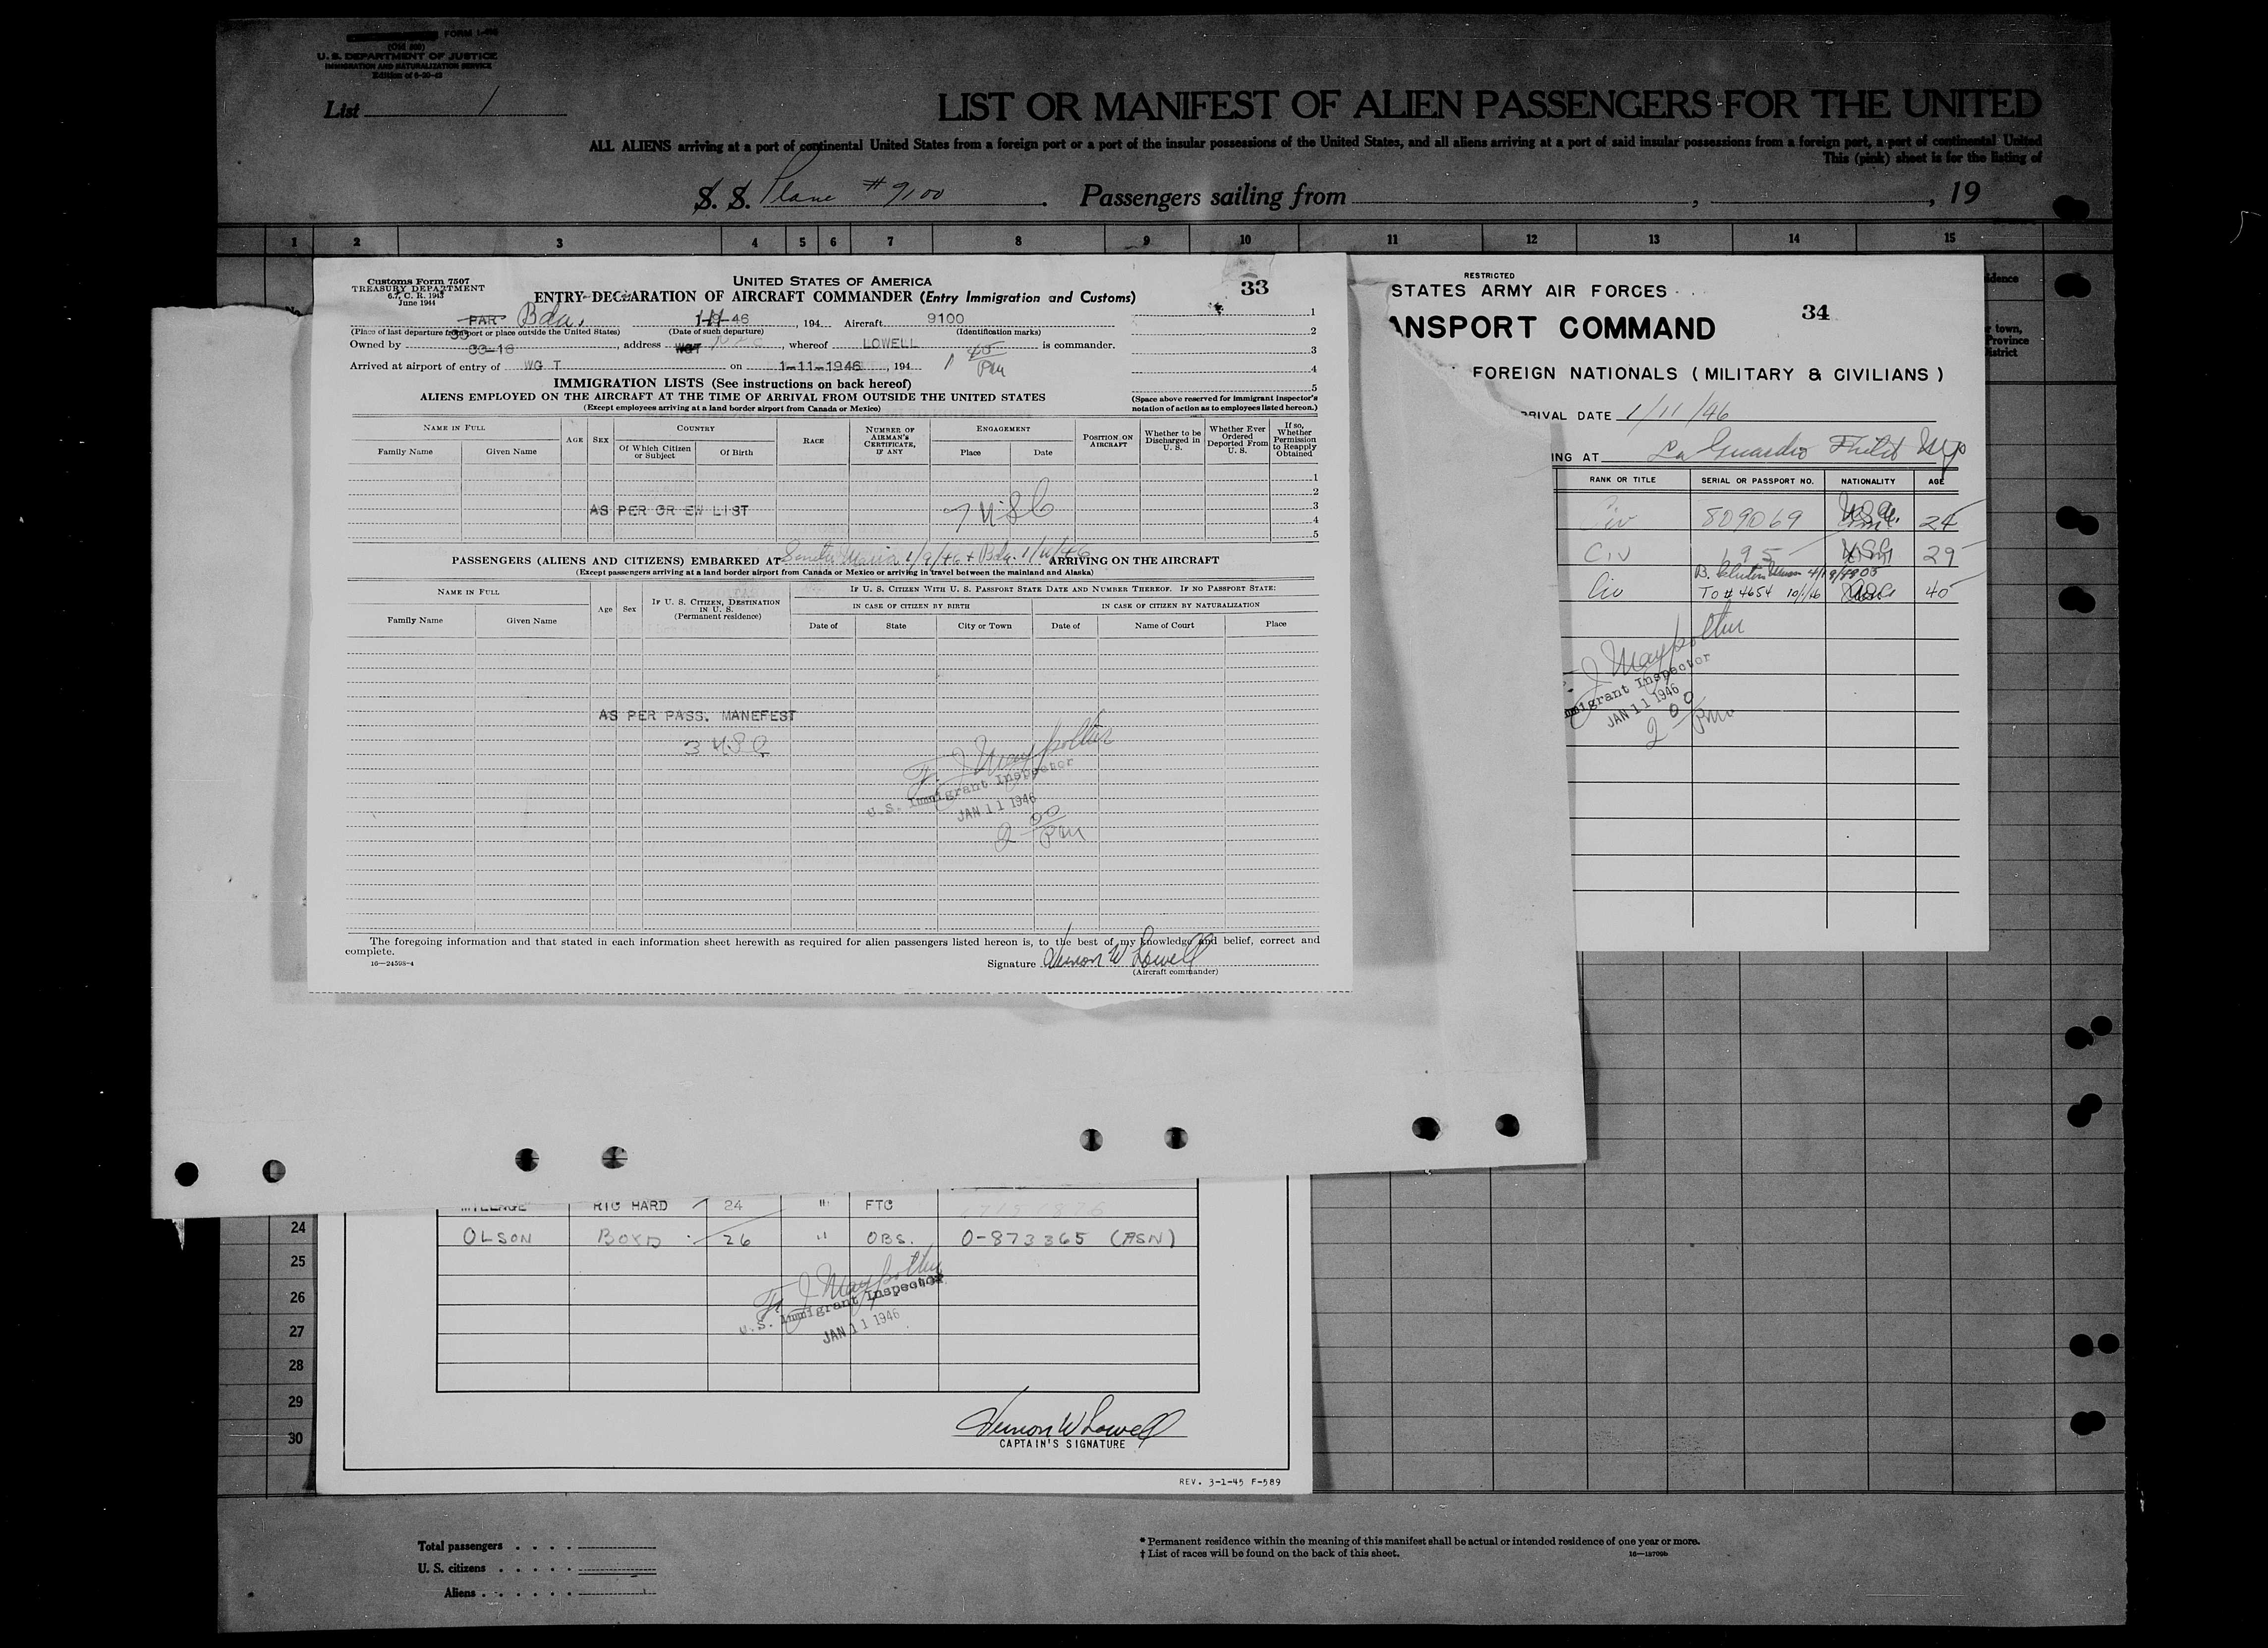 FORM I-415
(Old 500)
U. S. DEPARTMENT OF JUSTICE
IMMIGRATION AND NATURALIZATION SERVICE
List 1
LIST OR MANIFEST OF ALIEN PASSENGERS FOR THE UNITED
ALL ALIENS arriving at a port of continental United States from a foreign port or a port of the insular possessions of the United States, and all aliens arriving at a port of said insular possessions from a foreign port, a port of continental United
This (pink) sheet is for the listing of
S. S. Plane #9100. Passengers sailing from , , 19
1 2 3 4 5 6 7 8 9 10 11 12 13 14 15
Customs Form 7507
TREASURY DEPARTMENT
June 1944
UNITED STATES OF AMERICA
ENTRY DECLARATION OF AIRCRAFT COMMANDER (Entry Immigration and Customs)
33
PAR Bda. 1-11-46, 194 Aircraft 9100
(Place of last departure from port or place outside the United States) (Date of such departure) (Identification marks)
Owned by 33-16, address WGT, whereof LOWELL is commander.
Arrived at airport of entry of WG T on 1-11-1946, 194 1 45 PM
1
2
3
4
5
IMMIGRATION LISTS (See instructions on back hereof)
ALIENS EMPLOYED ON THE AIRCRAFT AT THE TIME OF ARRIVAL FROM OUTSIDE THE UNITED STATES
(Except employees arriving at a land border airport from Canada or Mexico)
(Space above reserved for immigrant inspector's notation of action as to employees listed hereon.)
NAME IN FULL
Family Name Given Name
AGE SEX
COUNTRY
Of Which Citizen or Subject Of Birth
RACE
NUMBER OF AIRMAN'S CERTIFICATE, IF ANY
ENGAGEMENT
Place Date
POSITION ON AIRCRAFT
Whether to be Discharged in U. S.
Whether Ever Ordered Deported From U. S.
If so, Whether Permission to Reapply Obtained
1
2
3
4
5
AS PER CR EW LIST
7 USC
PASSENGERS (ALIENS AND CITIZENS) EMBARKED AT Santa Maria 1/9/46 + Bda. 1/11/46 ARRIVING ON THE AIRCRAFT
(Except passengers arriving at a land border airport from Canada or Mexico or arriving in travel between the mainland and Alaska)
NAME IN FULL
Family Name Given Name
Age Sex
IF U. S. CITIZEN, DESTINATION IN U. S. (Permanent residence)
IF U. S. CITIZEN WITH U. S. PASSPORT STATE DATE AND NUMBER THEREOF. IF NO PASSPORT STATE:
IN CASE OF CITIZEN BY BIRTH IN CASE OF CITIZEN BY NATURALIZATION
Date of State City or Town Date of Name of Court Place
AS PER PASS. MANEFEST
3 USC
F. J. Maypother
U.S. Immigrant Inspector
JAN 11 1946
2 00 PM
The foregoing information and that stated in each information sheet herewith as required for alien passengers listed hereon is, to the best of my knowledge and belief, correct and
complete.
16—24598-4
Signature Vernon W Lowell
(Aircraft commander)
RESTRICTED
STATES ARMY AIR FORCES
34
ANSPORT COMMAND
FOREIGN NATIONALS (MILITARY & CIVILIANS)
RRIVAL DATE 1/11/46
ING AT La Guardia Field NY
RANK OR TITLE SERIAL OR PASSPORT NO. NATIONALITY AGE
Civ 809069 24
Civ 195 29
Civ TO # 4654 40
F. J. Maypother
Immigrant Inspector
JAN 11 1946
2 00 PM
idence
town,
Province
istrict
RIC HARD 24 " FTC
24
OLSON BOYD 26 " OBS. 0-873365 (ASN)
25
26
27
28
29
30
F. J. Maypother
U.S. Immigrant Inspector
JAN 11 1946
Vernon W Lowell
CAPTAIN'S SIGNATURE
REV. 3-1-45 F-589
Total passengers
U. S. citizens
Aliens
* Permanent residence within the meaning of this manifest shall be actual or intended residence of one year or more.
† List of races will be found on the back of this sheet.